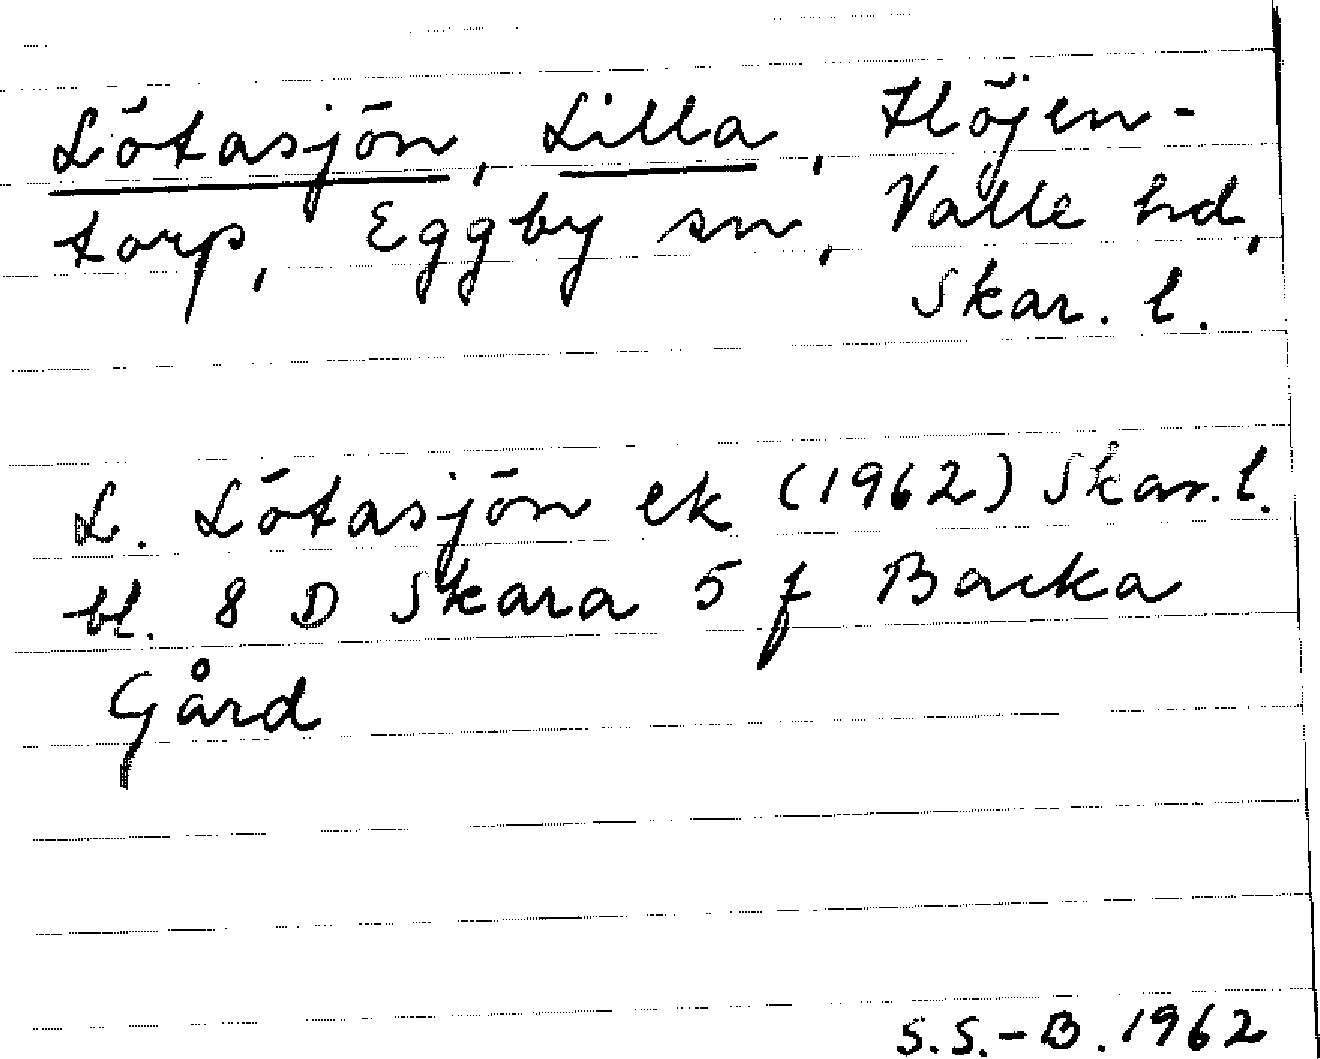 Lötasjön, Lilla, Höjen-
torp, Eggby sn, Valle hd,
Skar. l.
L. Lötasjön ek (1962) Skar. l.
bl. 8 D Skara 5 f Backa
Gård
S.S.-B. 1962